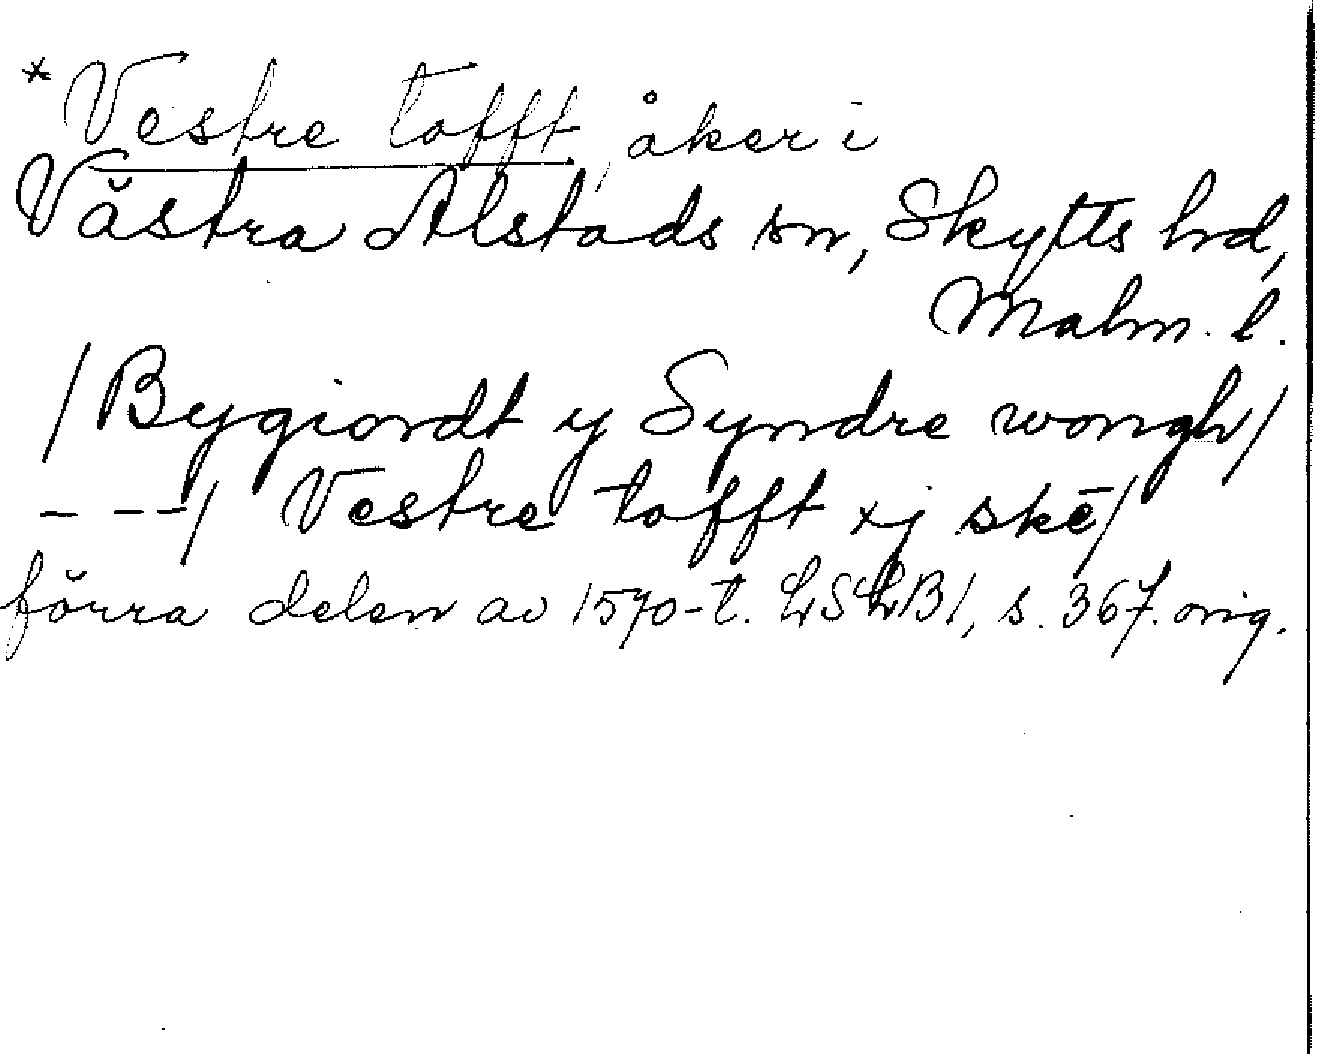 *Vestre tofft, åker i
Västra Alstads sn, Skytts hd,
Malm. l.
/Bygiordt y Syndre wongh/
- - -/ Vestre tofft xj skē/
förra delen av 1570-t. LSLB1, s. 367. orig.